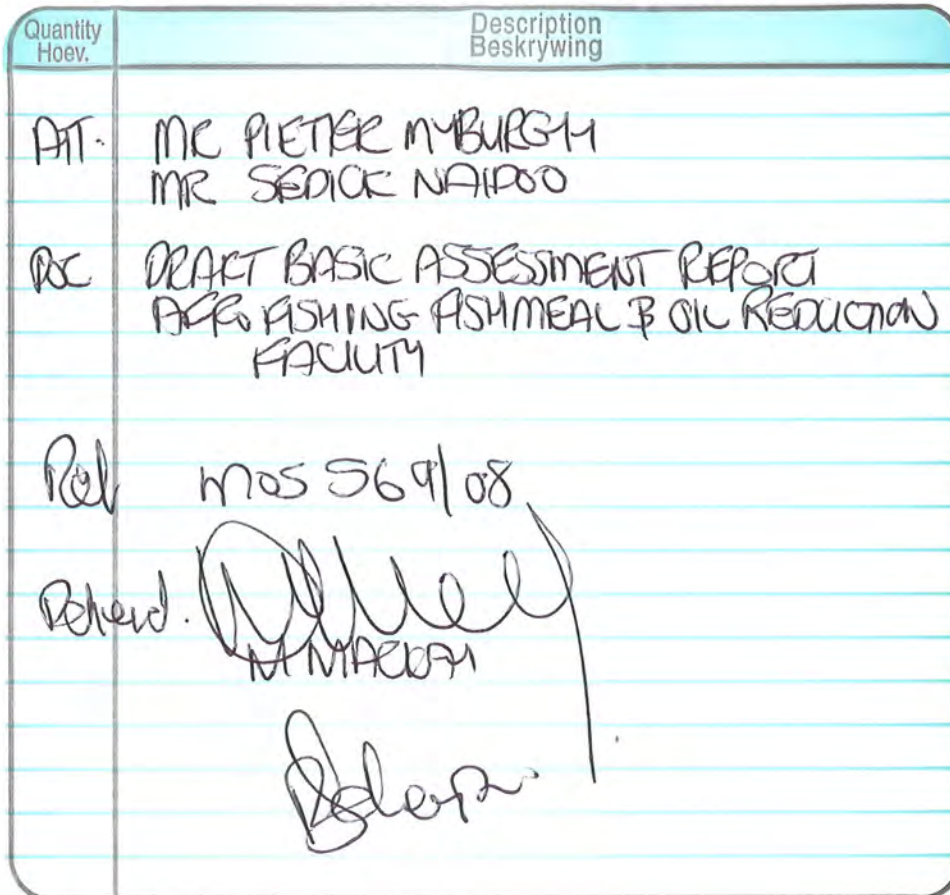 Quantity
Hoev.
Description
Beskrywing
ATT. MR PIETER MYBURGH
MR SEDICK NAIDOO
DOC DRAFT BASIC ASSESSMENT REPORT
AFRO FISHING FISHMEAL & OIL REDUCTION
FACILITY
Ref MOS 569/08
Deliverd.
M MACKAY